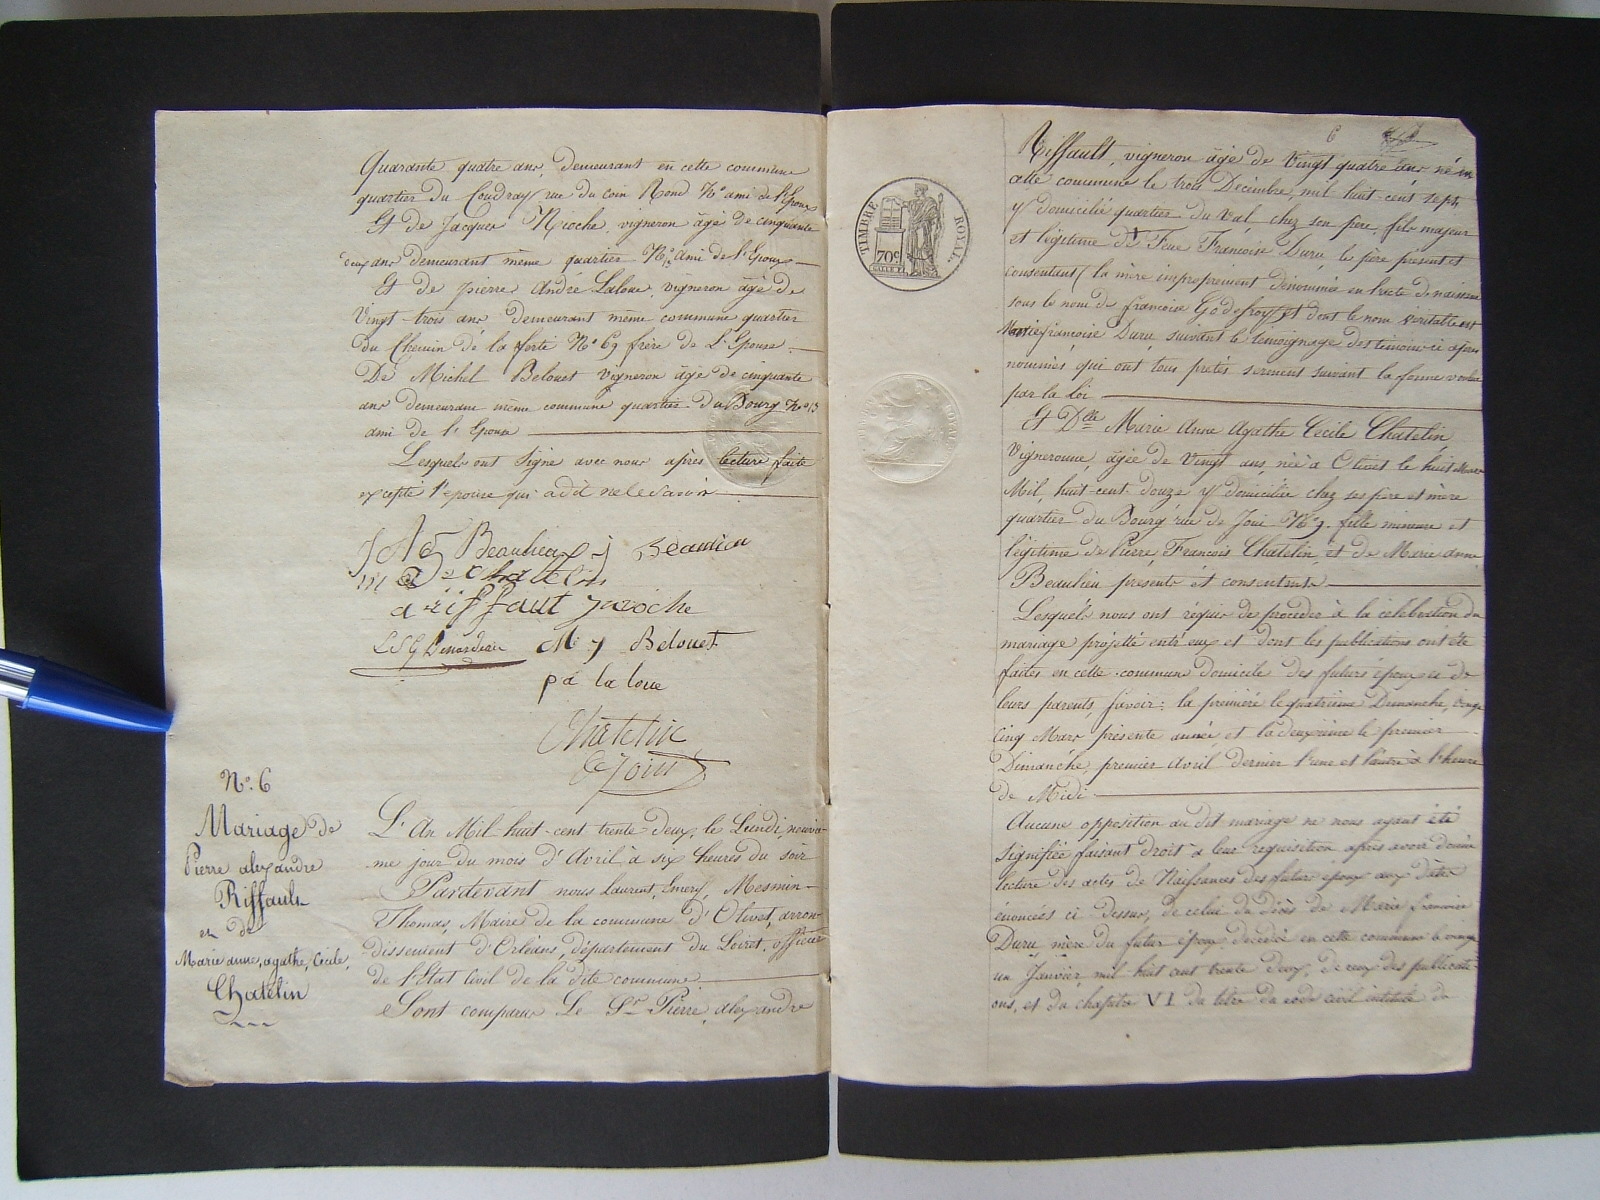 Quarante quatre ans, demeurant en cette commune
quartier du Coudray rue du coin Rond N° ami de l'Epoux
Et de Jacques Rioche, vigneron âgé de cinquante
deux ans demeurant même quartier N° ami de l'Epoux
Et de pierre André Laloue, vigneron âgé de
Vingt-trois ans demeurant même commune quartier
du Chemin de la forte N° 69 frère de L'Epouse.
De Michel Belouet vigneron âgé de cinquante
ans demeurant même commune quartier du Bourg N° 13
ami de l'Epouse
Lesquels ont Signé avec nous après lecture faite
excepté l'epouse qui a dit ne le Savoir
Beaulieu j Beaulieu
Chatelin
a riffaut j rioche
L S G Denardeau M j Belouet
p a la loue
Chatelin
N° 6
Mariage de
Pierre alexandre
Riffault
et de
Marie anne, agathe, Cécile,
Chatelin
L'An Mil-huit-cent trente deux, le Lundi, neuviè-
me jour du mois d'Avril à six heures du soir
Pardevant nous Laurent, Emery, Mesmin-
Thomas, Maire de la commune d'Olivet, arron-
dissement d'Orléans, département du Loiret, officier
de l'Etat Civil de la dite commune.
Sont comparus Le Sr. Pierre, alexandre
6
TIMBRE ROYAL
70c
Riffault, vigneron âgé de Vingt quatre ans né en
cette commune le trois Décembre, mil huit-cent sept,
y domicilié quartier du Val, chez son père, fils majeur
et légitime de Feue Françoise Duru, le père présent et
consentant (la mère improprement dénommée en l'acte de naissance
sous le nom de françoise Godefroy) et dont le nom veritable est
Marie françoise Duru, suivant le témoignage des témoins ci après
nommés qui ont tous prêtés serment suivant la forme voulue
par la loi
Et Dlle Marie Anne Agathe Cécile Chatelin
Vigneronne, âgée de Vingt ans, née à Olivet le huit Mars
Mil, huit-cent-douze y domiciliée chez ses père et mère
quartier du Bourg rue de Joui N° 7. fille mineure et
légitime de Pierre, François Chatelin, et de Marie anne
Beaulieu présents et consentants
Lesquels nous ont requis de procéder à la célébration du
mariage projetté entr'eux et dont les publications ont été
faites en cette commune domicile des futurs époux et de
leurs parents, savoir: la première le quatrième Dimanche, vingt
cinq Mars présente année et la deuxième le premier
Dimanche, premier Avril dernier l'une et l'autre à l'heure
de Midi
Aucune opposition au dit mariage ne nous ayant été
signifiée faisant droit à leur requisition après avoir donné
lecture des actes de Naissances des futurs époux aux dates
énoncées ci-dessus, de celui du décès de Marie françoise
Duru mère du futur époux décédée en cette commune le vingt
un Janvier, mil huit cent trente deux, de ceux des publicati-
ons, et du chapitre VI du titre du code civil intitulé du